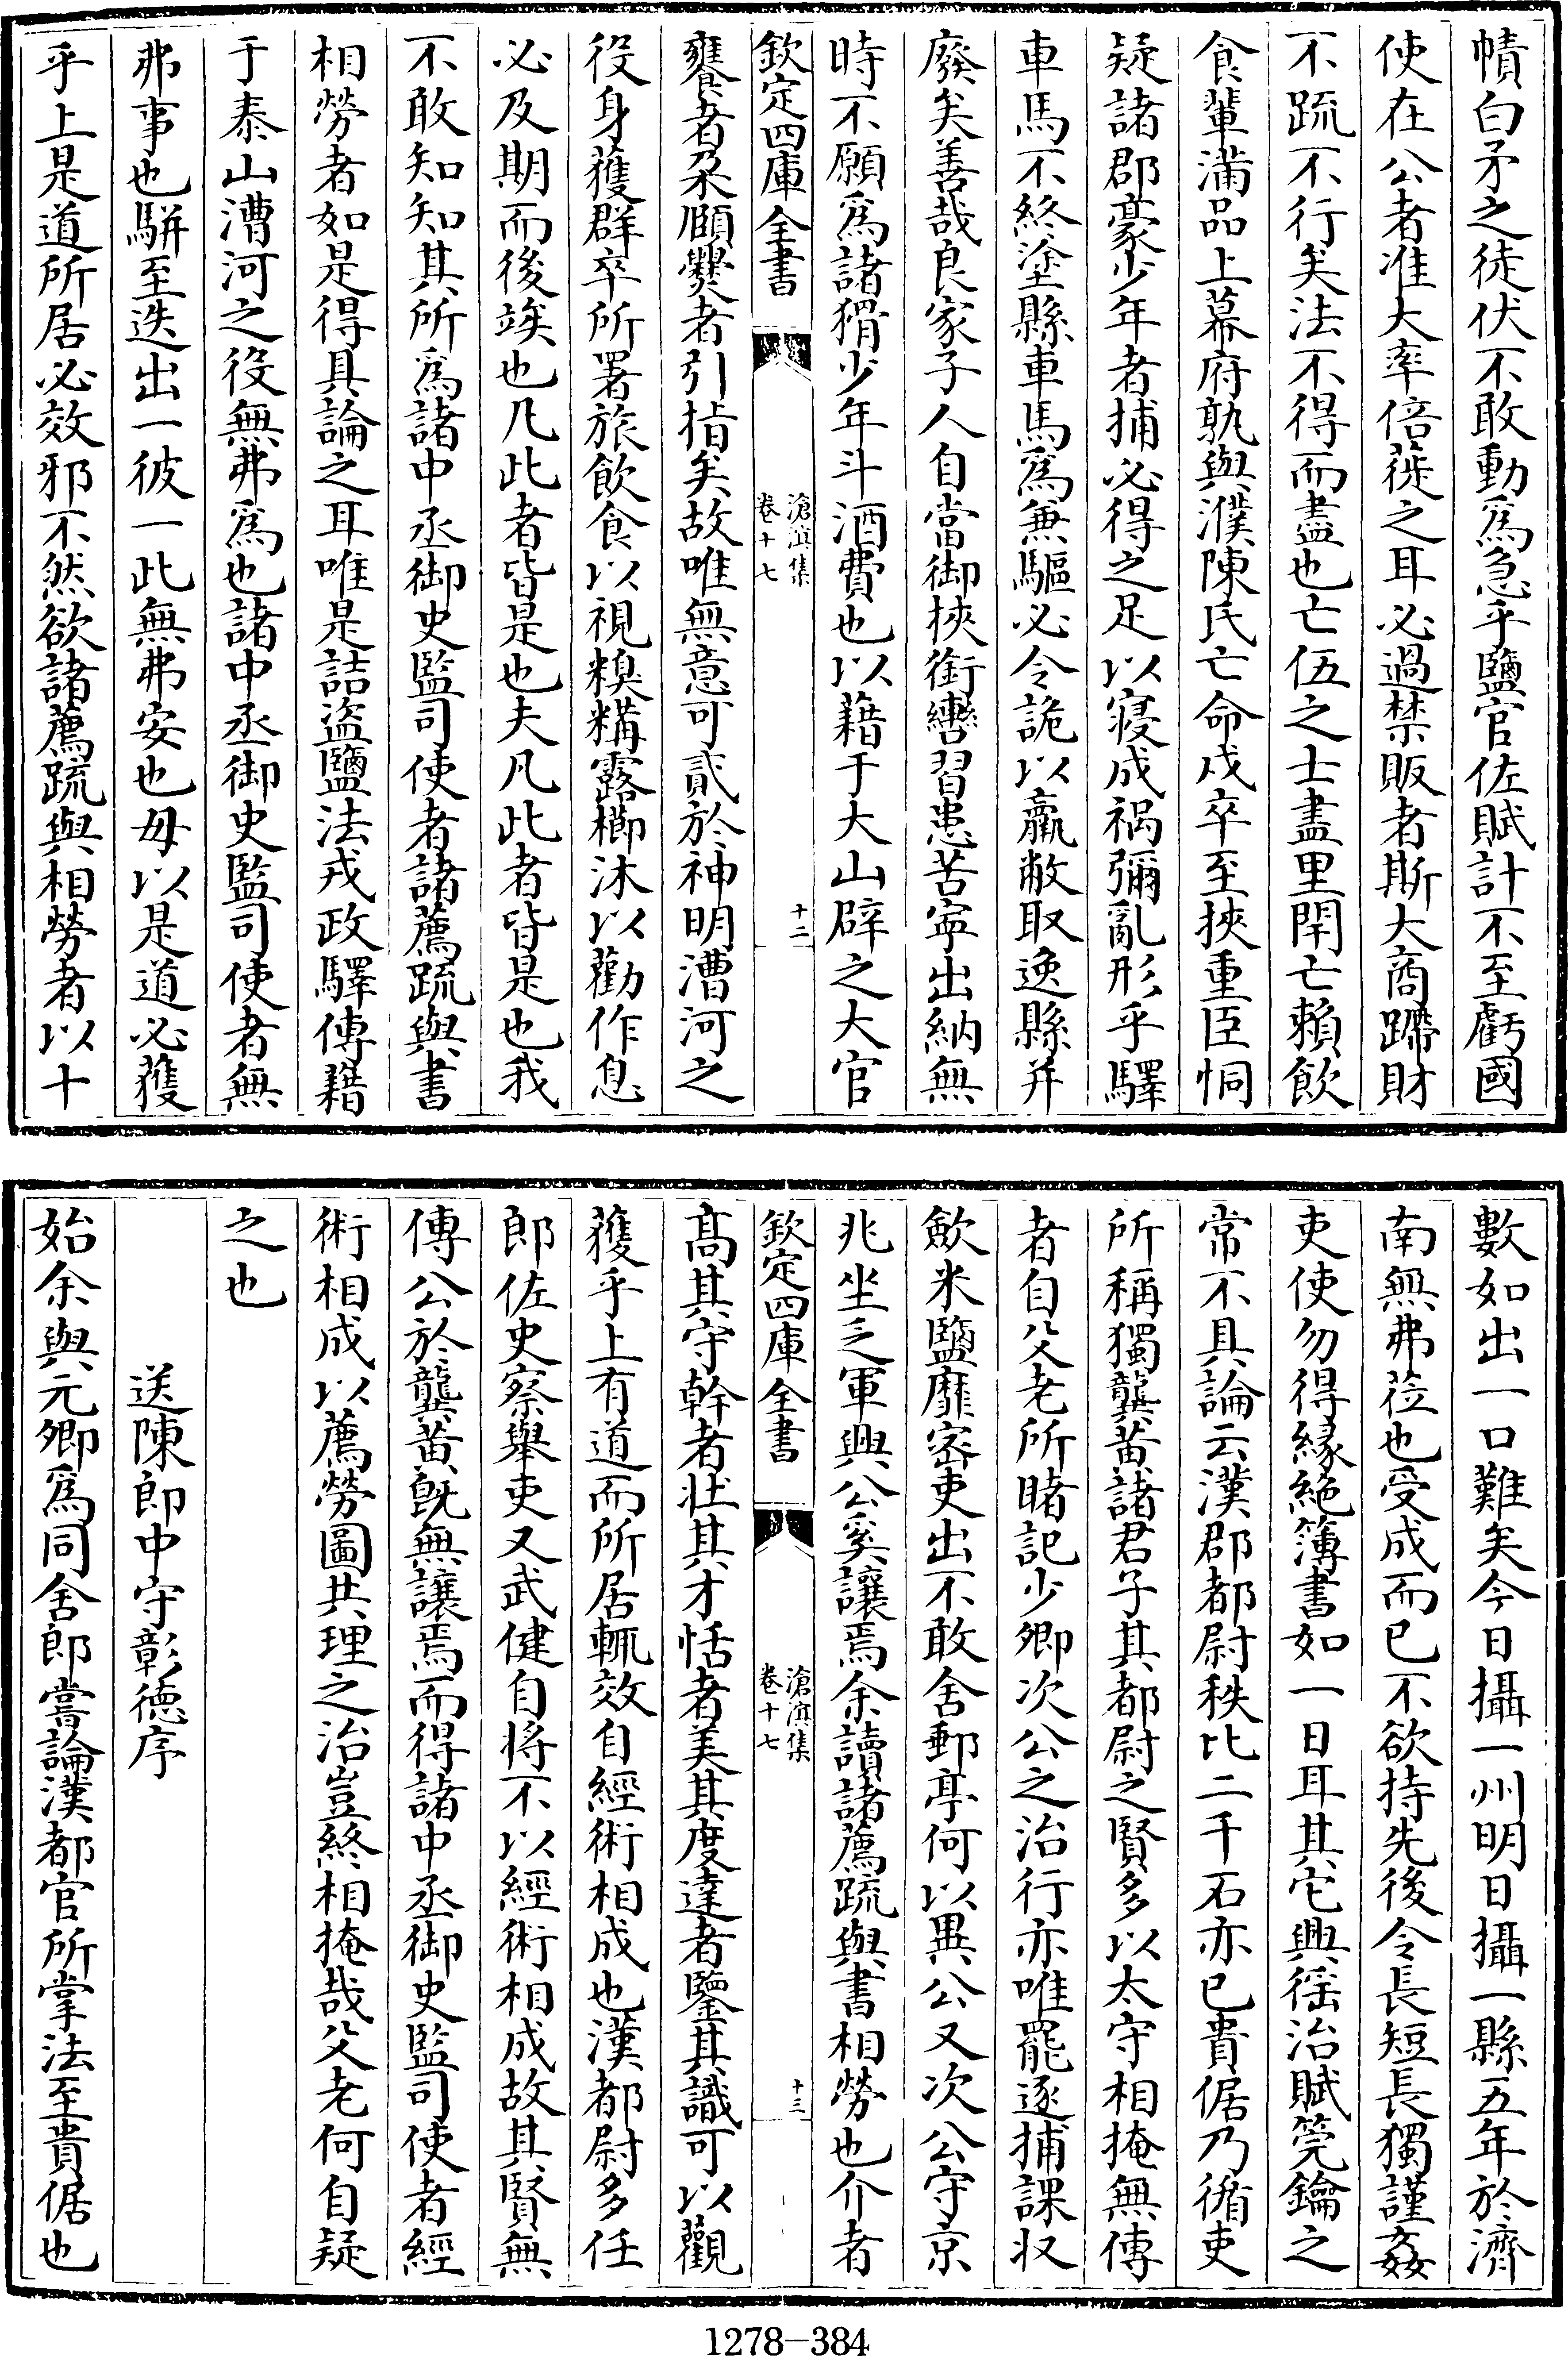 幘白矛之徒伏不敢動為急乎鹽官佐賦計不至虧國
使在公者准大率倍蓰之耳必過禁販者斯大商蹛財
不䟽不行矣法不得而盡也亡伍之士盡里閈亡賴飲
食輩滿品上幕府孰與濮陳氏亡命戍卒至挾重臣恫
疑諸郡豪少年者捕必得之足以寢成禍彌亂形乎驛
車馬不終塗縣車馬為兼驅必令詭以羸敝取逸縣并
廢矣善哉良家子人自當御挾銜轡習患苦寧出納無
時不願為諸猾少年斗酒費也以藉于大山辟之大官
欽定四庫全書
滄溟集
卷十七
十二
饔者朶頤爨者引指矣故唯無意可貳於神明漕河之
役身獲群卒所署旅飲食以視糗糒露櫛沐以勸作息
必及期而後竢也凡此者皆是也夫凡此者皆是也我
不敢知知其所為諸中丞御史監司使者諸薦䟽與書
相勞者如是得具論之耳唯是詰盜鹽法戎政驛傳藉
于泰山漕河之役無弗為也諸中丞御史監司使者無
弗事也駢至迭出一彼一此無弗安也毋以是道必獲
乎上是道所居必效邪不然欲諸薦䟽與相勞者以十
數如出一口難矣今日攝一州明日攝一縣五年於濟
南無弗蒞也受成而已不欲持先後令長短長獨謹姦
吏使勿得緣絶簿書如一日耳其它興徭治賦筦鑰之
常不具論云漢郡都尉秩比二千石亦已貴倨乃循吏
所稱獨龔黄諸君子其都尉之賢多以太守相掩無傳
者自父老所睹記少卿次公之治行亦唯罷逐捕課收
歛米鹽靡宻吏出不敢舍郵亭何以異公又次公守京
兆坐乏軍興公奚讓焉余讀諸薦䟽與書相勞也介者
欽定四庫全書
滄溟集
卷十七
十三
髙其守幹者壯其才恬者美其度達者鑒其識可以觀
獲乎上有道而所居輒效自經術相成也漢都尉多任
郎佐史察舉吏又武健自將不以經術相成故其賢無
傳公於龔黄既無讓焉而得諸中丞御史監司使者經
術相成以薦勞圖共理之治豈終相掩哉父老何自疑
之也
送陳郎中守彰徳序
始余與元卿為同舍郎嘗論漢都官所掌法至貴倨也
1278-384